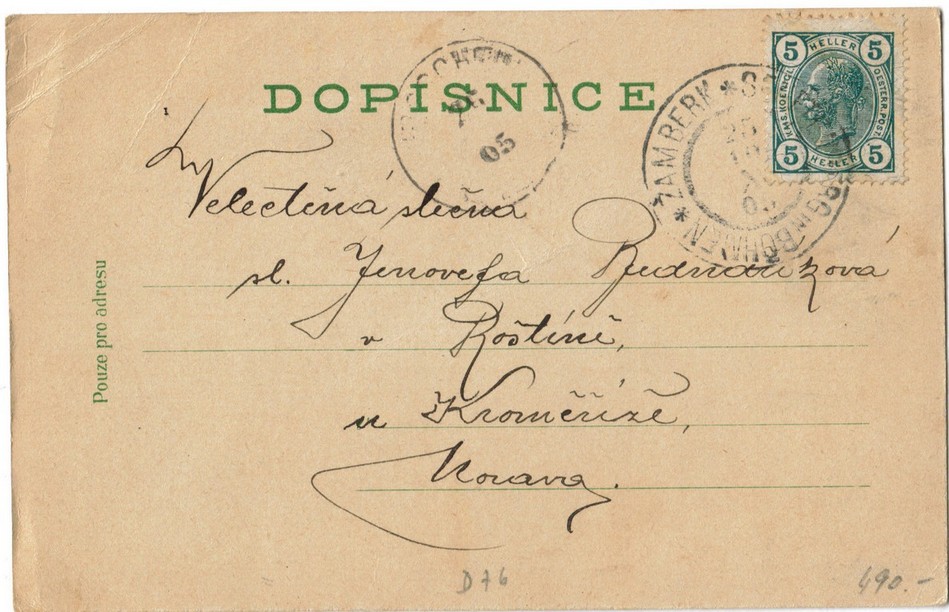 DOPISNICE
5 HELLER 5
KAIS. KOENIGL. OESTERR. POST.
5 HELLER 5
* ŽAMBERK * IN BÖHMEN *
05
Velectěná slečna
sl. Jenovefa
v Roštíně,
u Kroměříže,
Morava.
Pouze pro adresu
D76
490.-